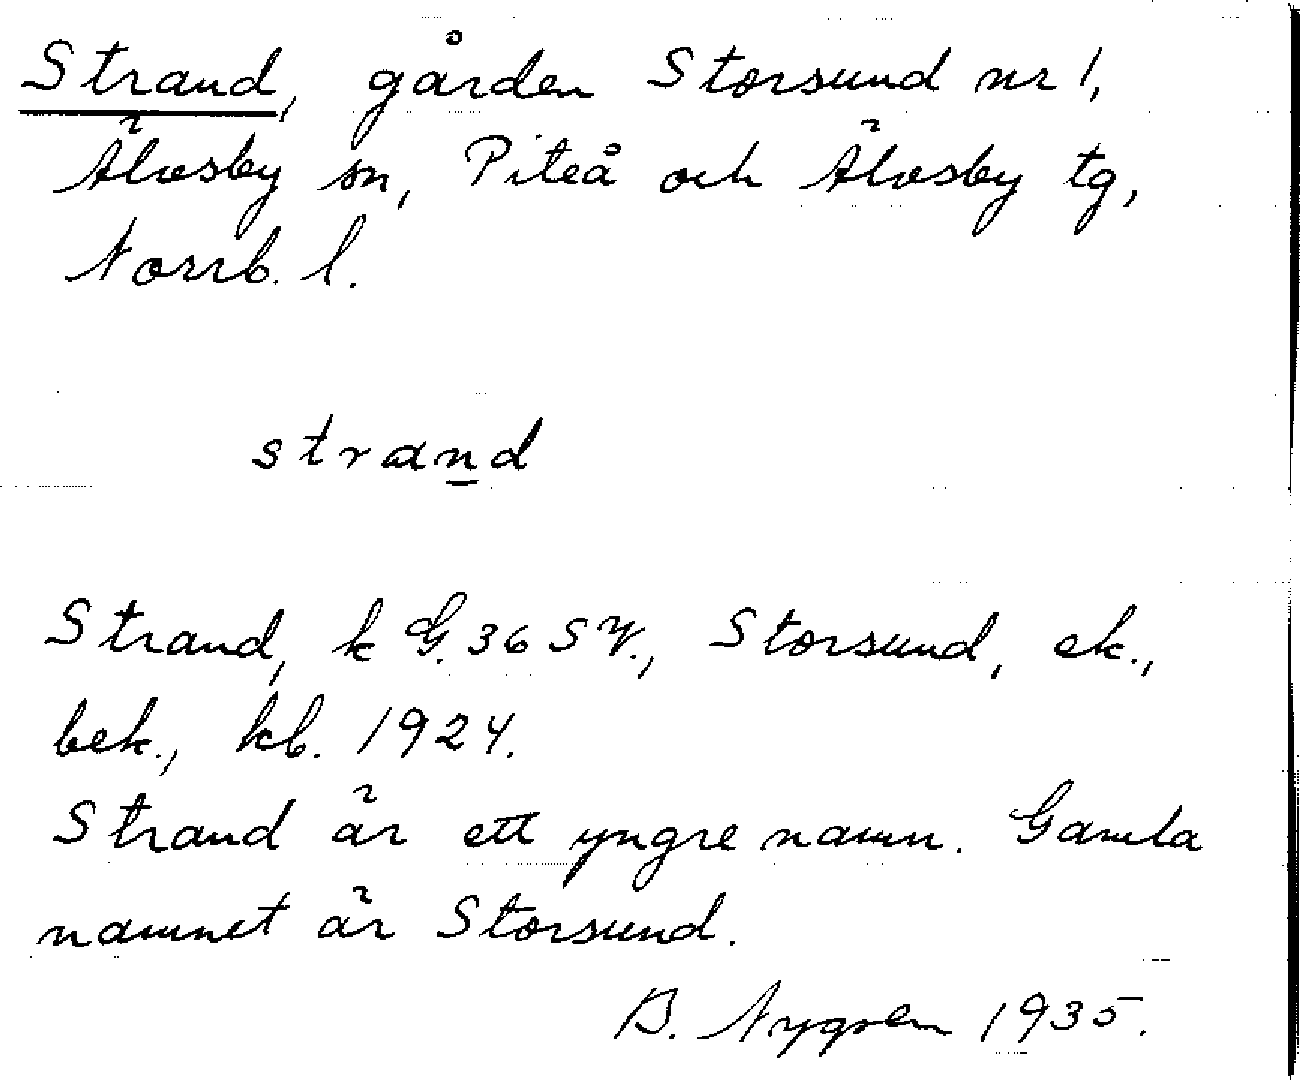 Strand, gården Storsund nr 1,
Älvsby sn, Piteå och Älvsby tg,
Norrb. l.
strand
Strand, k G. 36 S V., Storsund, ek.,
bek., kb. 1924.
Strand är ett yngre namn. Gamla
namnet är Storsund.
B. Nygren 1935.